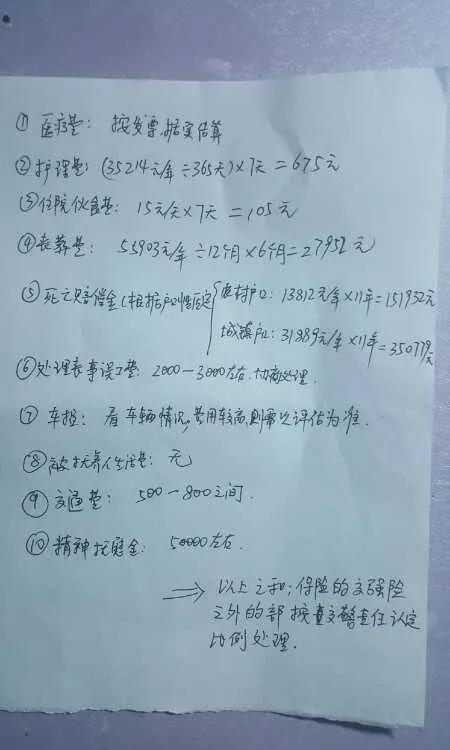 ① 医疗费: 按发票,据实结算
② 护理费: (35214元/年÷365天)×7天=675元
③ 住院伙食费: 15元/天×7天=105元
④ 丧葬费: 55903元/年÷12个月×6个月=27952元
⑤ 死亡赔偿金(根据户口性质定
农村户口: 13812元/年×11年=151932元
城镇户口: 31889元/年×11年=350779元
⑥ 处理丧事误工费: 2000-3000左右.协商处理.
⑦ 车损: 看车辆情况,费用较高,则需以评估为准.
⑧ 被扶养人生活费: 无
⑨ 交通费: 500-800之间.
⑩ 精神抚慰金: 50000左右.
⇒ 以上之和;保险的交强险
之外的部按查交警责任认定
比例处理.